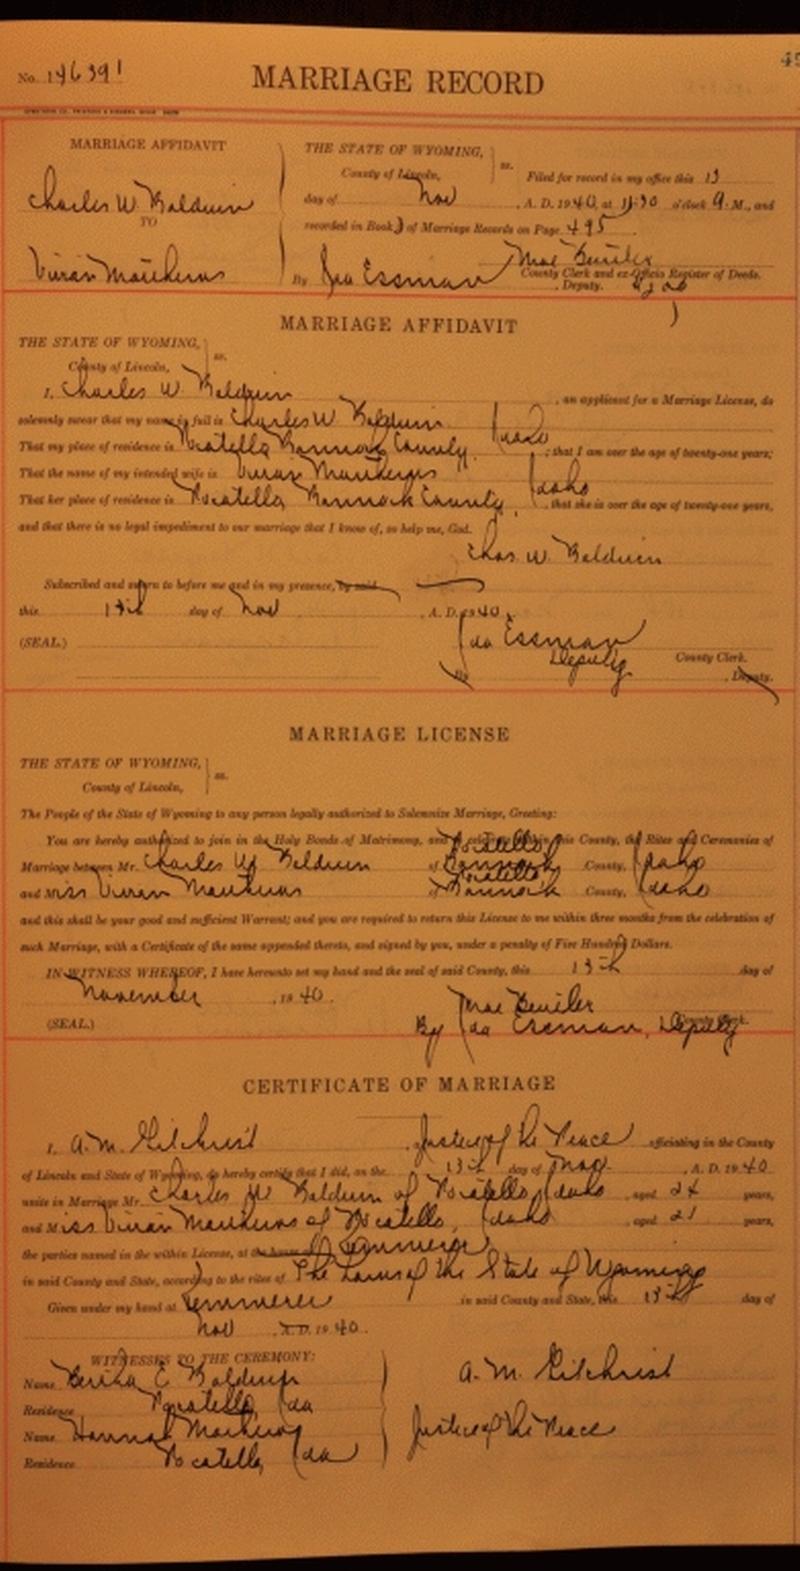 45
No. 146391
MARRIAGE RECORD
MARRIAGE AFFIDAVIT
Charles W. Baldwin
TO
Vivian Matthews
THE STATE OF WYOMING,
County of Lincoln, ss.
Filed for record in my office this 13
day of Nov, A. D. 1940, at 11:30 o'clock A. M., and
recorded in Book of Marriage Records on Page 495
Mae Beutler
County Clerk and ex-Officio Register of Deeds.
By Ida Essman, Deputy.
MARRIAGE AFFIDAVIT
THE STATE OF WYOMING,
County of Lincoln, ss.
I, Charles W. Baldwin, an applicant for a Marriage License, do
solemnly swear that my name in full is Charles W Baldwin
That my place of residence is Pocatello Bannock County, Idaho; that I am over the age of twenty-one years;
That the name of my intended wife is Vivian Matthews
That her place of residence is Pocatello Bannock County, Idaho, that she is over the age of twenty-one years,
and that there is no legal impediment to our marriage that I know of, so help me, God.
Chas. W. Baldwin
Subscribed and sworn to before me and in my presence, by said
this 13th day of Nov, A. D. 1940.
Ida Essman
(SEAL.) Deputy County Clerk.
By , Deputy.
MARRIAGE LICENSE
THE STATE OF WYOMING,
County of Lincoln, ss.
The People of the State of Wyoming to any person legally authorized to Solemnize Marriage, Greeting:
You are hereby authorized to join in the Holy Bonds of Matrimony, and within this County, the Rites and Ceremonies of
Pocatello
Marriage between Mr. Charles W. Baldwin of Bannock County, Idaho
Pocatello
and Miss Vivian Matthews of Bannock County, Idaho
and this shall be your good and sufficient Warrant; and you are required to return this License to me within three months from the celebration of
such Marriage, with a Certificate of the same appended thereto, and signed by you, under a penalty of Five Hundred Dollars.
IN WITNESS WHEREOF, I have hereunto set my hand and the seal of said County, this 13th day of
November, 1940.
Mae Beutler
(SEAL.) County Clerk.
By Ida Essman, Deputy
CERTIFICATE OF MARRIAGE
I, A. M. Gilchrist, Justice of the Peace officiating in the County
of Lincoln and State of Wyoming, do hereby certify that I did, on the 13th day of Nov., A. D. 1940
unite in Marriage Mr. Charles W Baldwin of Pocatello, Idaho, aged 24 years,
and Miss Vivian Matthews of Pocatello, Idaho, aged 21 years,
the parties named in the within License, at the house of Kemmerer
in said County and State, according to the rites of The Laws of the State of Wyoming
Given under my hand at Kemmerer in said County and State, this 13th day of
Nov A. D. 1940.
WITNESSES TO THE CEREMONY:
Name Bertha E Baldwin
A. M. Gilchrist
Residence Pocatello, Ida
Name Hannah Matthews
Justice of the Peace
Residence Pocatello, Ida